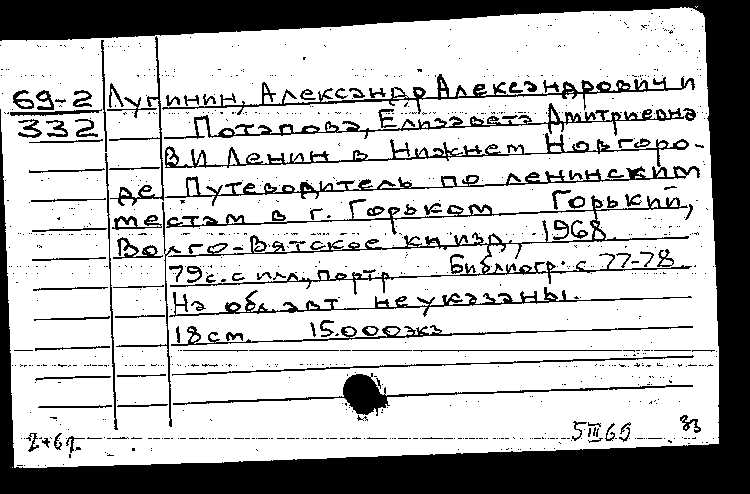 69-2 Лугинин, Александр Александрович и
332 Потапова, Елизавета Дмитриевна
В.И Ленин в Нижнем Новгоро-
де Путеводитель по ленинским
местам в г. Горьком Горький,
Волго-Вятское кн. изд., 1968.
79с. с илл., портр. Библиогр: с 77-78.
На обл. авт не указаны.
18 см. 15.000 экз
2+61. 5 III 69 33